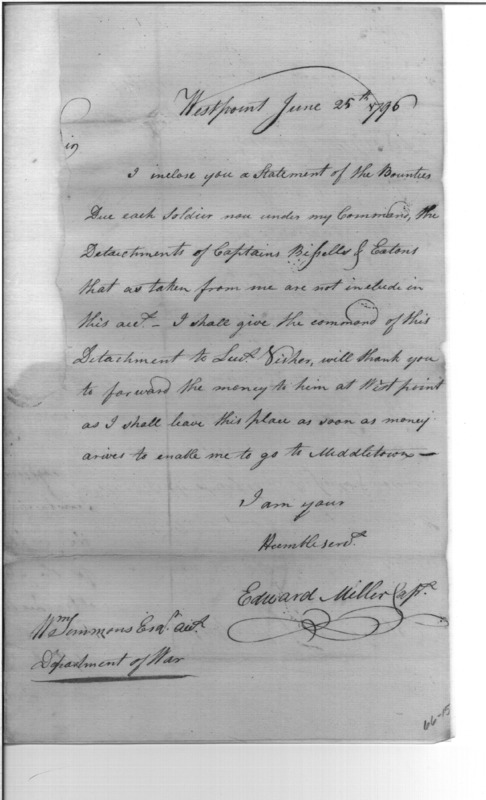 Westpoint June 25th 1796
Sir
I inclose you a Statement of the Bounties
Due each Soldier now under my Command, the
Detachments of Captains Bissells & Eatons
that as taken from me are not include in
this acct. - I shall give the command of this
Detachment to Lieut. Visher, will thank you
to forward the money to him at West point
as I shall leave this place as soon as money
arives to enable me to go to Middletown -
I am your
Humble servt.
Edward Miller Capt.
Wm. Simmons Esqr. acct.
Department of War